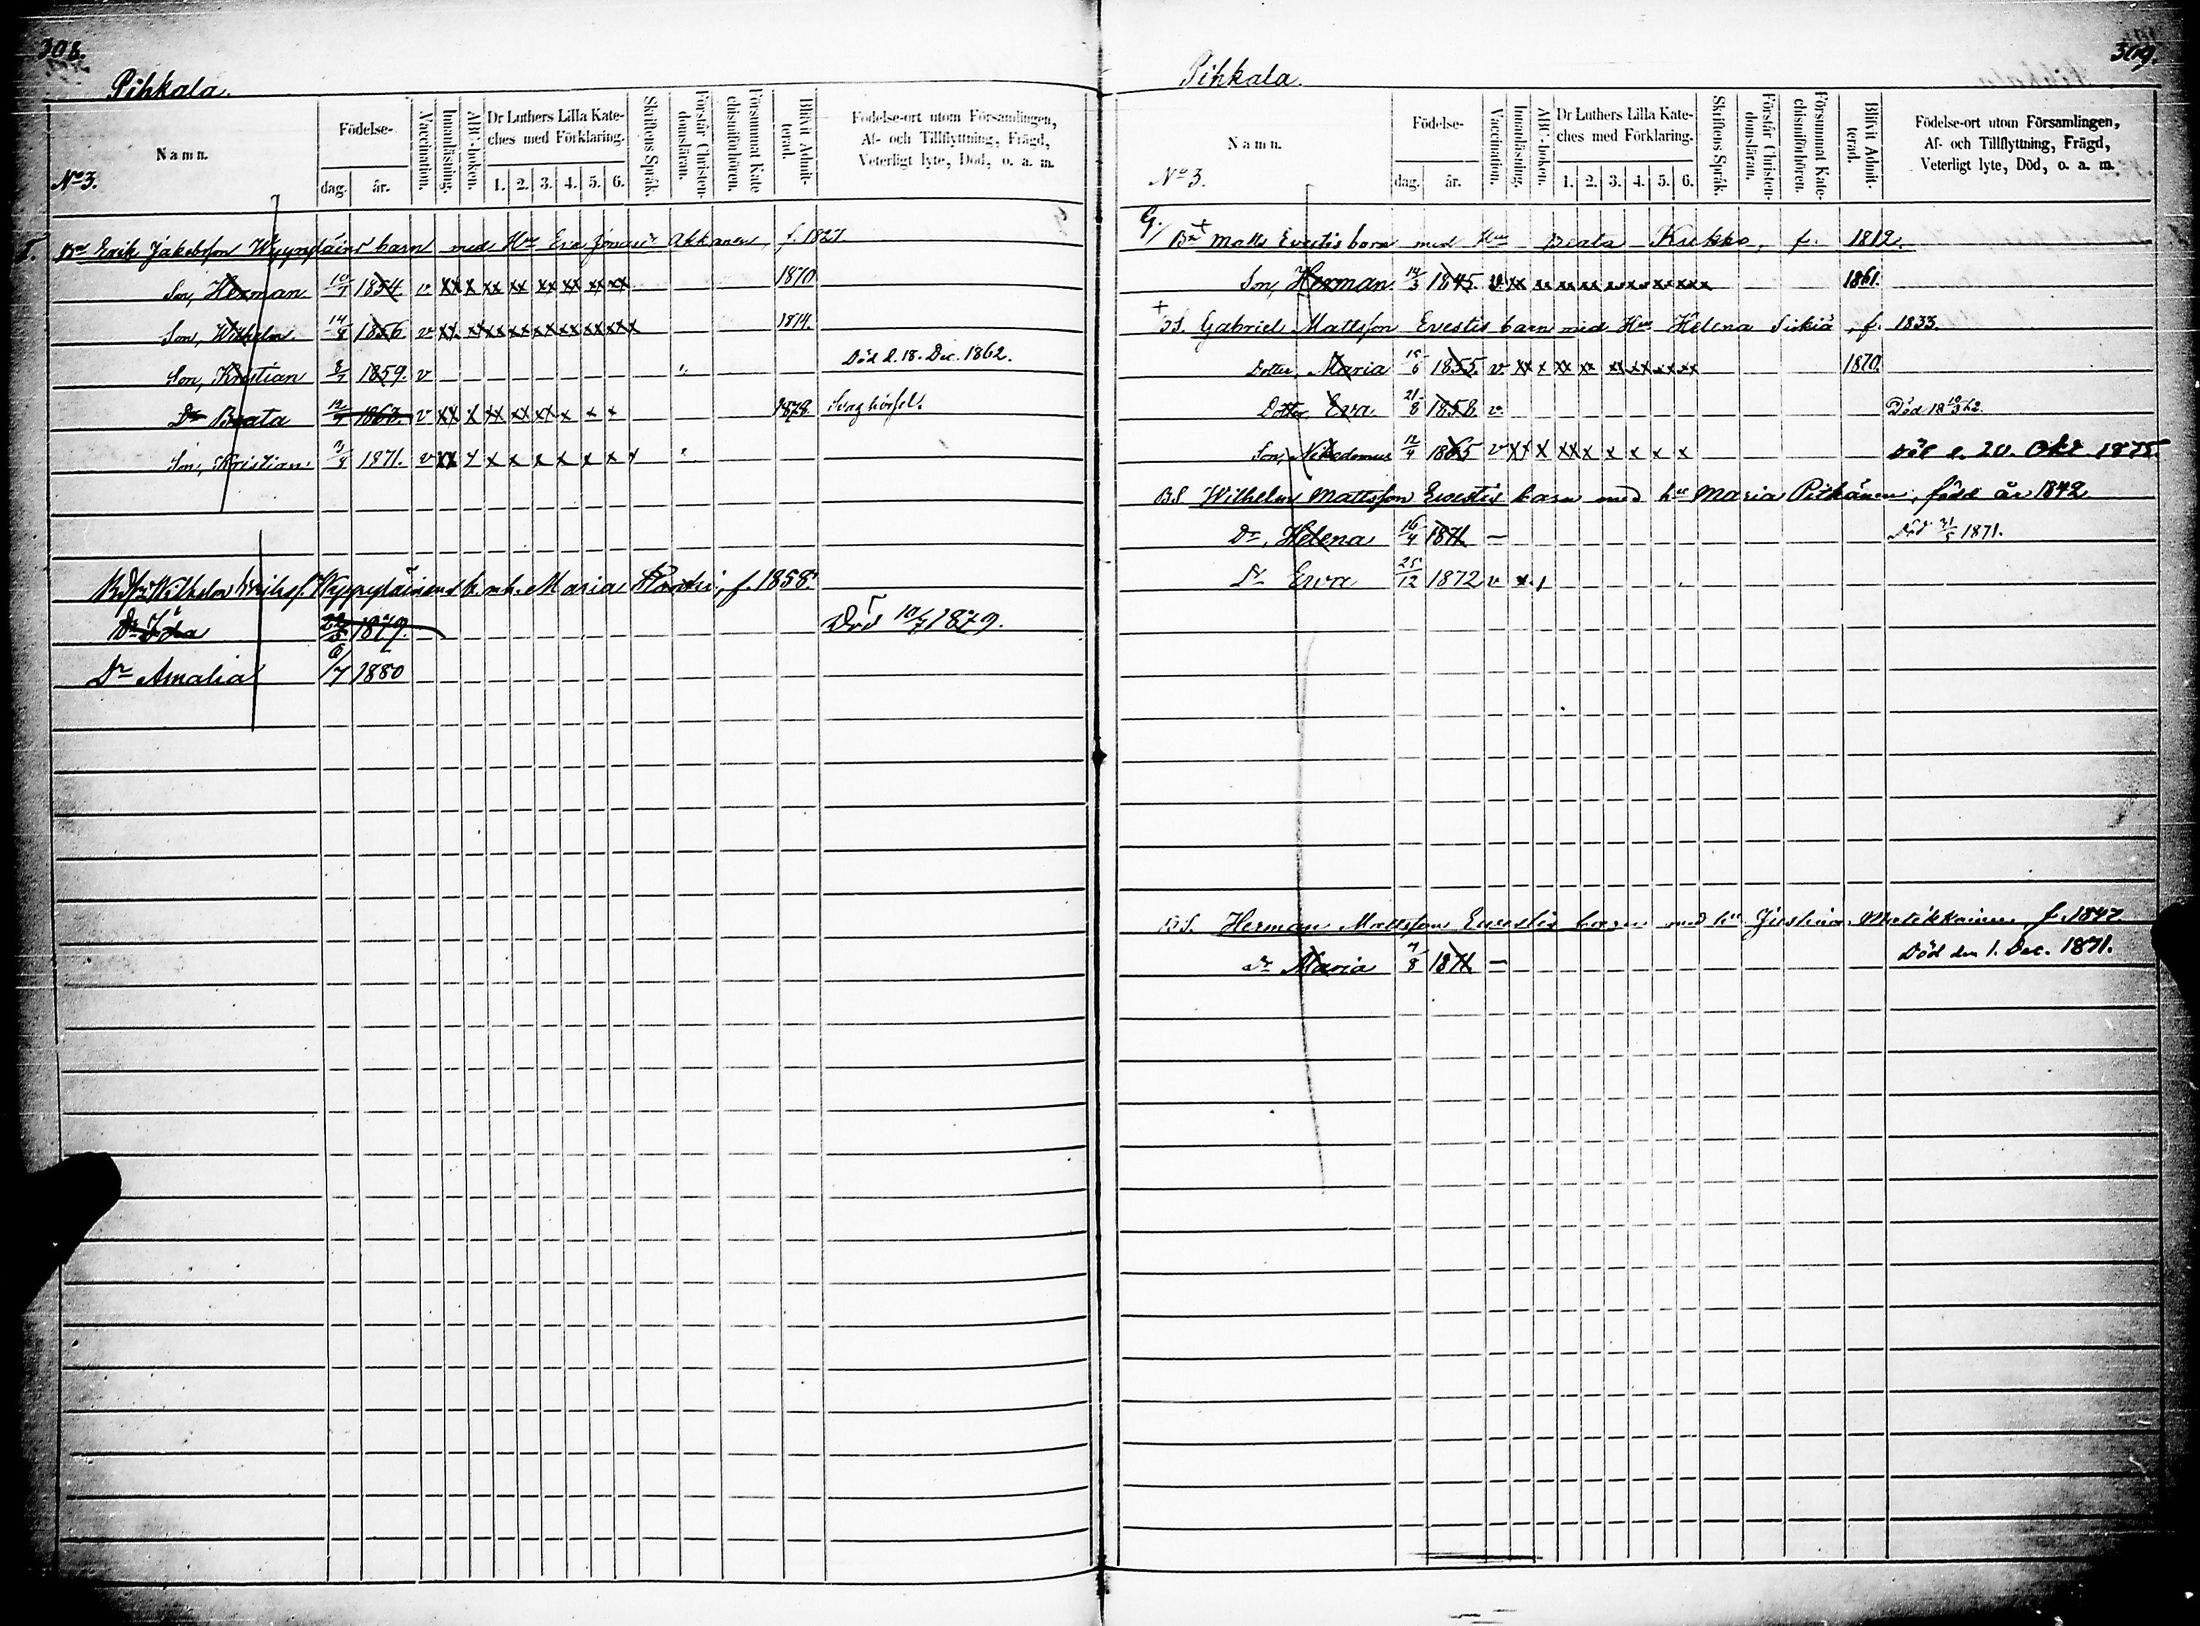 308.
Pihkala.
Namn.
No 3.
Födelse-
dag. år.
Vaccination.
Innanläsning.
ABC-boken.
Dr Luthers Lilla Kate-
ches med Förklaring.
1. 2. 3. 4. 5. 6.
Skriftens Språk.
Förstår Christen-
domsläran.
Försummat Kate-
chismiförhören.
Blivit Admit-
terad.
Födelse-ort utom Församlingen,
Af- och Tillflyttning, Frägd,
Veterligt lyte, Död, o. a. m.
Erik Jakobsson barn med Hu Eva Akkanen, f. 1827.
Son, Herman 10/7 1854. v xx x xx xx xx xx xx xx 1870
Son, Wilhelm. 14/8 1856 v 1874.
Son, Kristian 8/7 1859. v Död d. 18. Dec. 1862.
Dr Beata 1863. v xx x xx xx xx x x x 1878. Svag hörsel.
Son, Kristian 1871. v xx x x x x x x x
Wilhelm Maria f. 1858.
Dr Ida 22/5 1879. Död 10/7 1879.
Dr Amalia 6/7 1880
309.
Pihkala.
Namn.
No 3.
Födelse-
dag. år.
Vaccination.
Innanläsning.
ABC-boken.
Dr Luthers Lilla Kate-
ches med Förklaring.
1. 2. 3. 4. 5. 6.
Skriftens Språk.
Förstår Christen-
domsläran.
Försummat Kate-
chismiförhören.
Blivit Admit-
terad.
Födelse-ort utom Församlingen,
Af- och Tillflyttning, Frägd,
Veterligt lyte, Död, o. a. m.
G. Matts Evestis barn med Hu Beata Kukko, f. 1812.
Son, Herman 14/3 1845. v. 1861.
Gabriel Mattsson Evestis barn med Hu Helena Siekiä, f. 1833.
Dotter, Maria 15/6 1855. v. xx x xx xx xx xx xx xx 1870.
Dotter Eva 21/8 1858 v. Död 18 10/3 62.
Son, Nikodemus 12/4 1865 v xx x xx x x x x x Död d. 20. Okt. 1875.
BS. Wilhelm Mattsson Evestis barn med hu Maria Pitkänen, född år 1842
Dr, Helena 16/4 1871 – Död 31/5 1871.
Dr Ewa 25/12 1872 v x
BS. Herman Mattsson Ewestis barn med hu Justina f. 1847
Dr Maria 7/8 1871 – Död den 1. Dec. 1871.